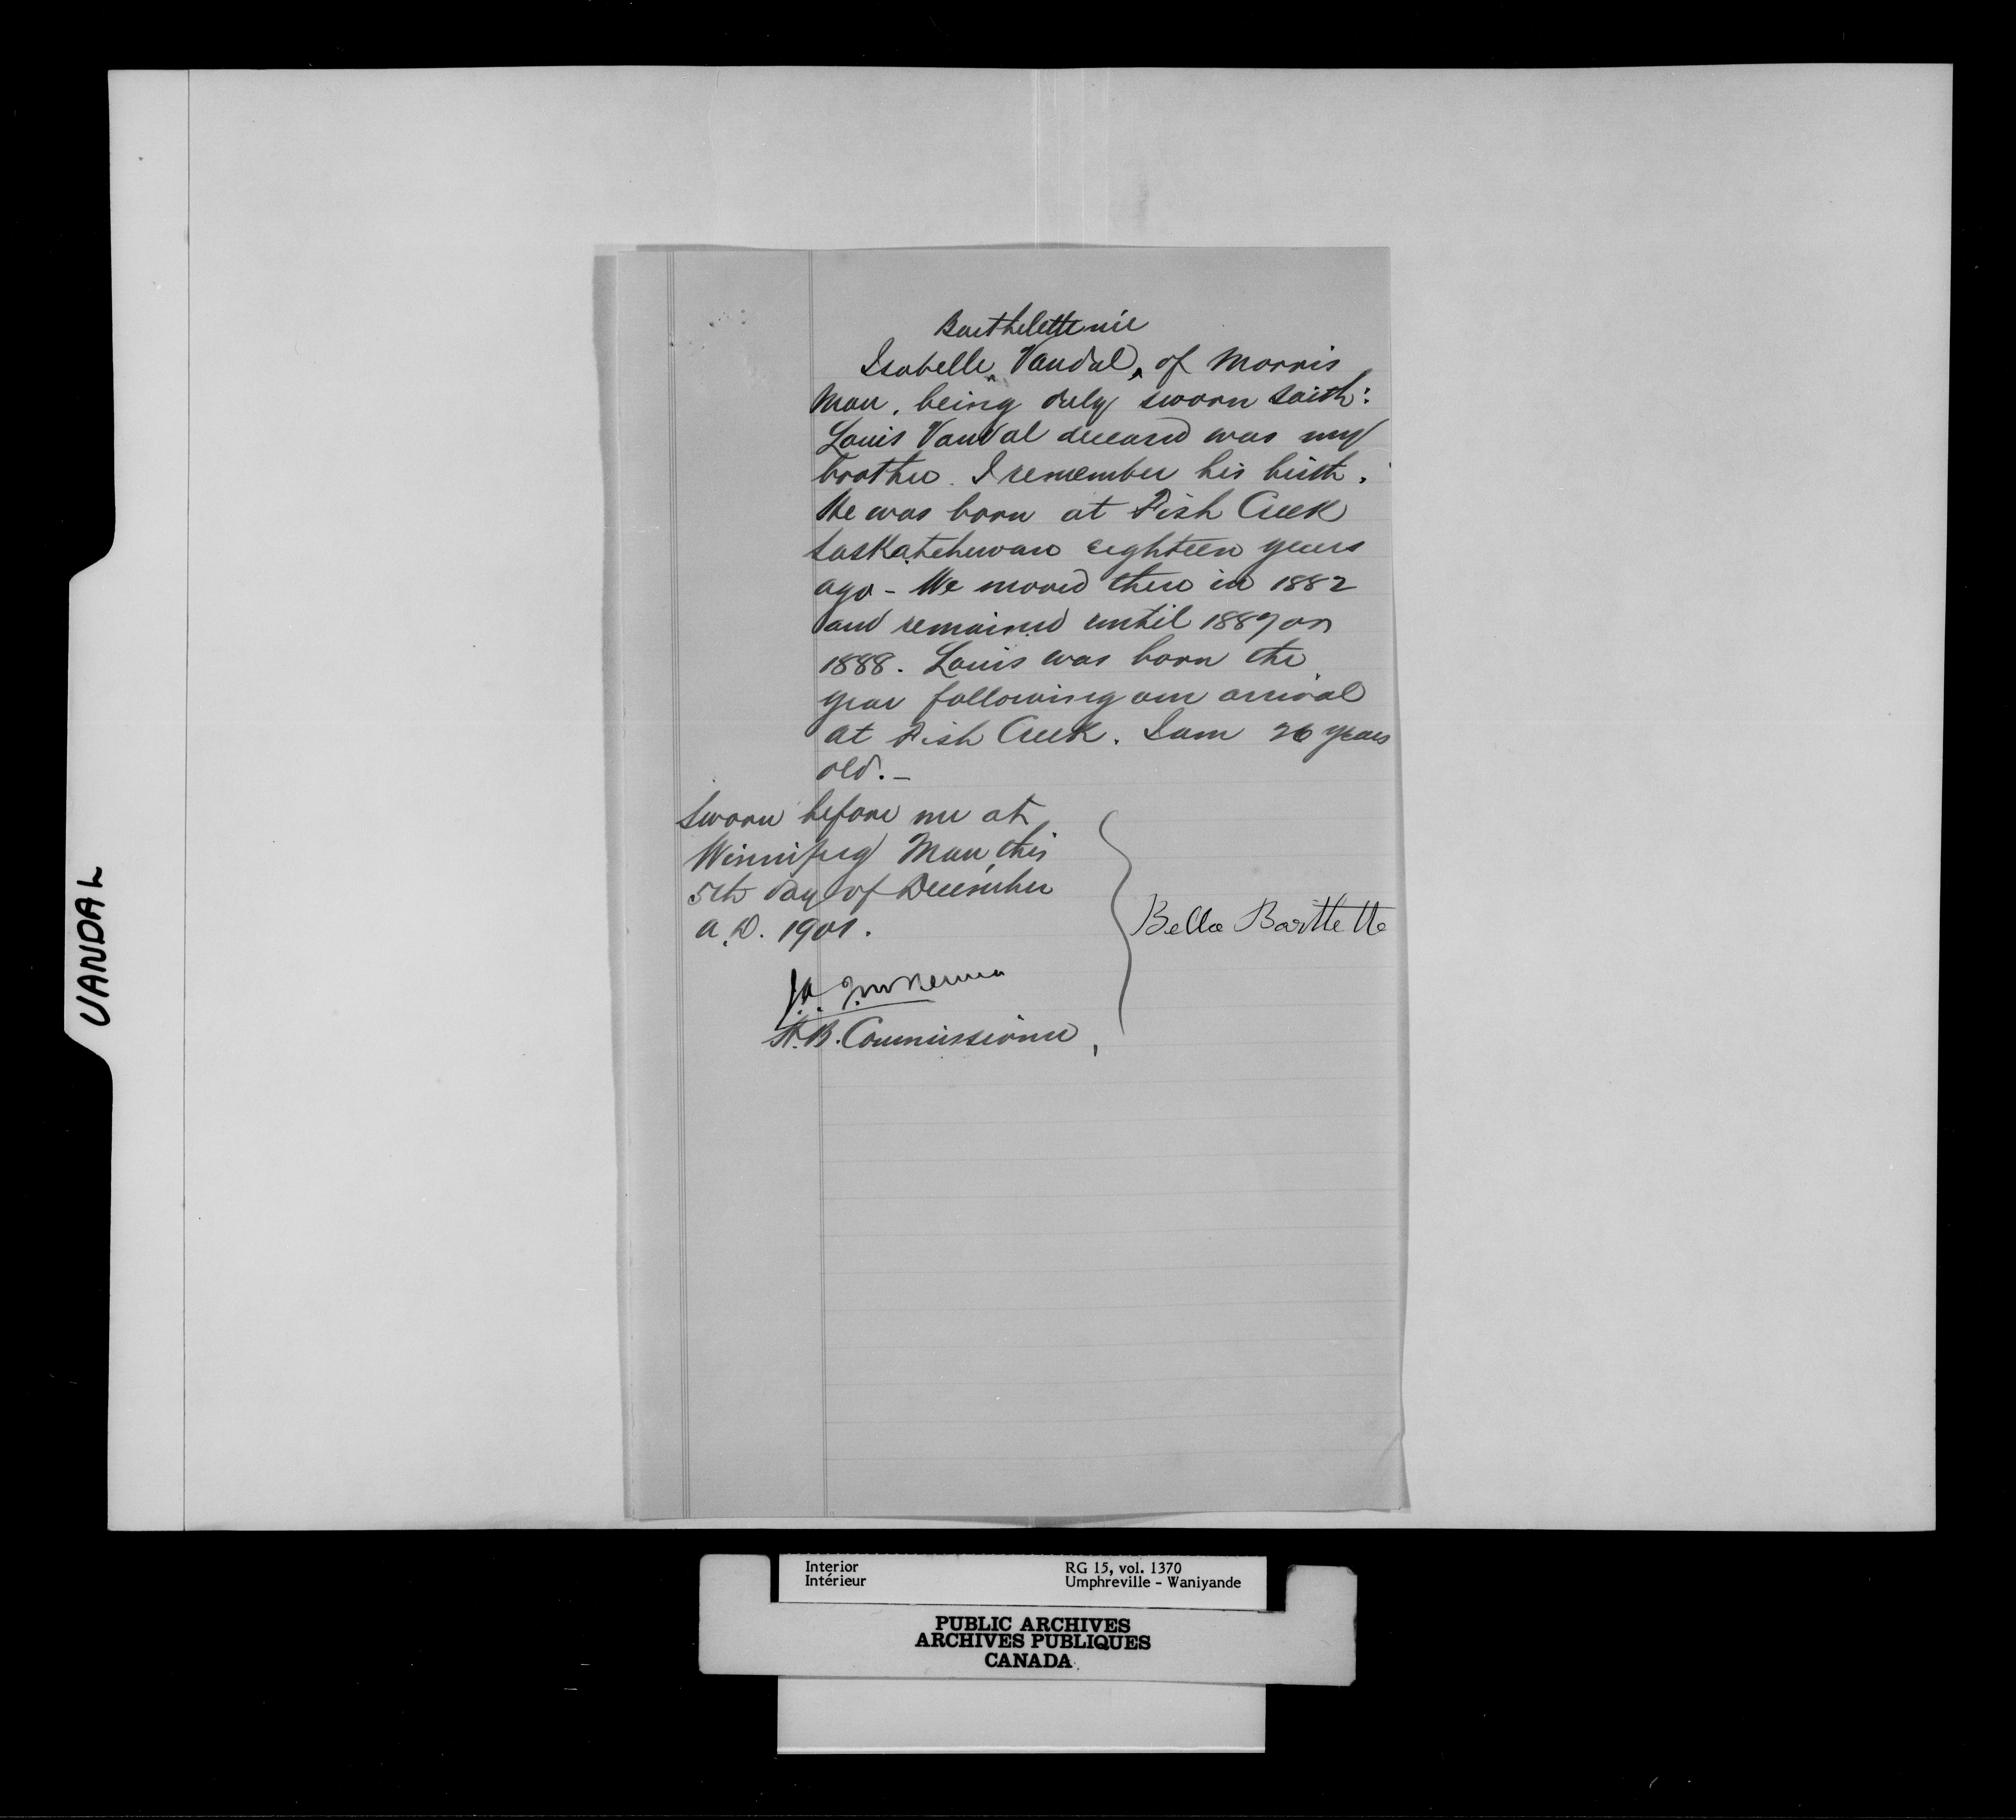 Barthelette née
Isabelle Vandal, of Morris
Man. being duly sworn saith:
Louis Vandal deceased was my
brother. I remember his birth.
He was born at Fish Creek
Saskatchewan eighteen years
ago - We moved there in 1882
and remained until 1887 or
1888. Louis was born the
year following our arrival
at Fish Creek. I am 26 years
old. -
Sworn before me at
Winnipeg Man, this
5th day of December
A.D. 1901.
Bella Barttette
J.A. J. McKenna
H.B. Commissioner,
VANDAL
Interior
Intérieur
RG 15, vol. 1370
Umphreville - Waniyande
PUBLIC ARCHIVES
ARCHIVES PUBLIQUES
CANADA